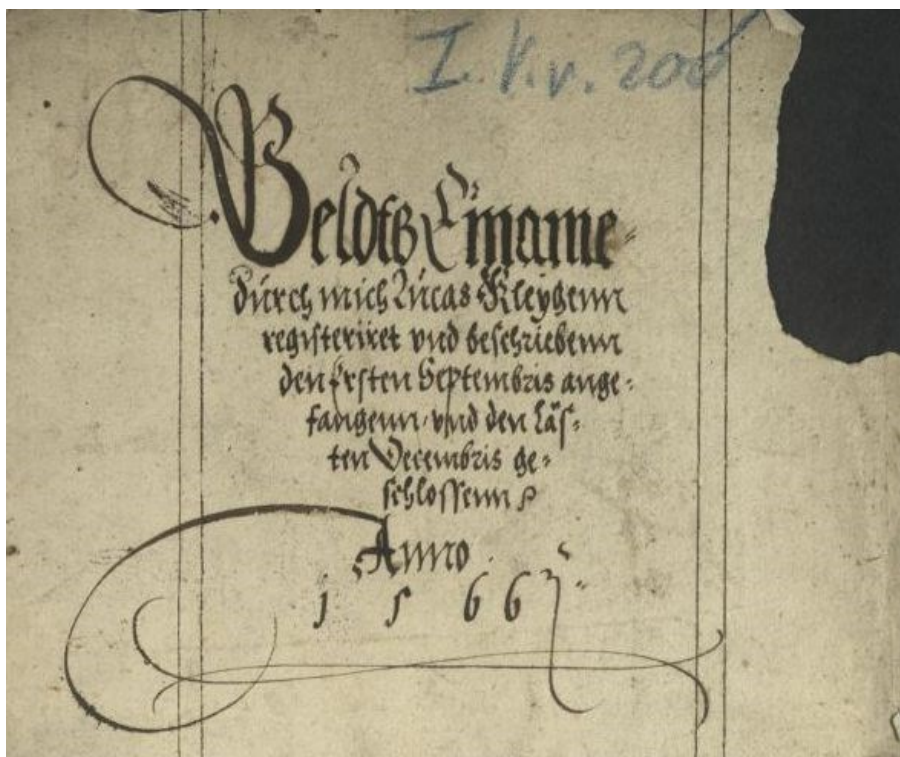 I. V. v. 200
Geldtß Einame=
durch mich Lucas
registeriret vnd beschriebenn
den Ersten Septembris ange=
fangenn vnd den Läs=
ten Decembris ge=
schlossenn
Anno
1 5 6 6